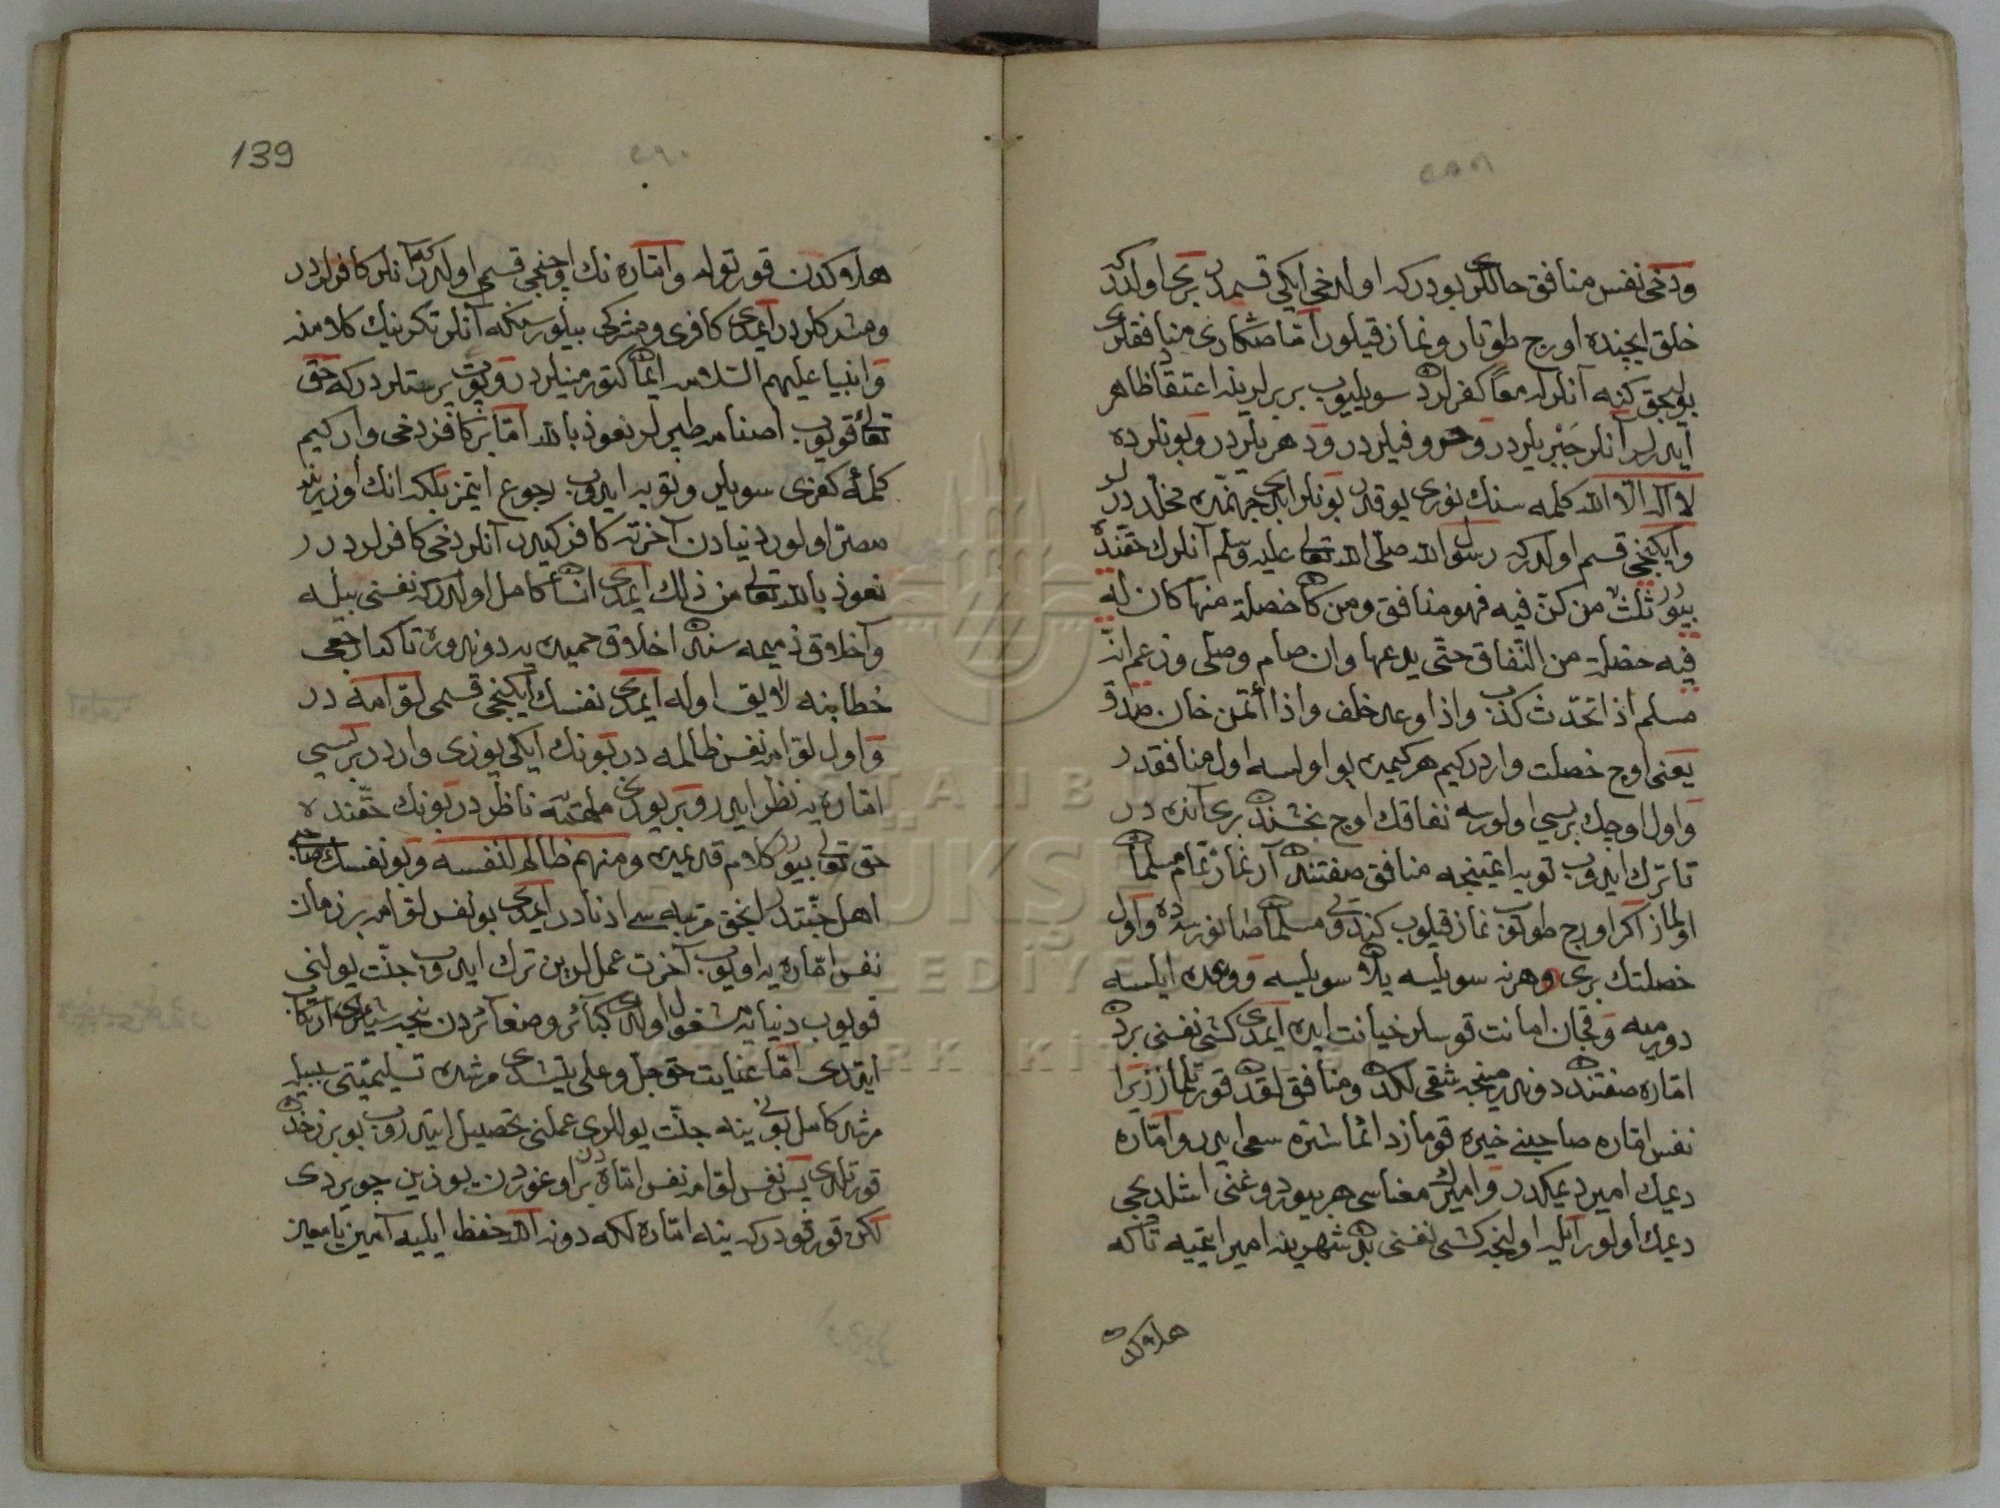 ودخی نفس منافق حاللری بودرکه اولدخی ایکی قسمدر بری اولدرکه
خلق ایچنده اورج طوتار ونماز قیلور اما صکاری منافقلری
بولیجق کنه آنلرله معاً کفرلرده سویلیوب بربرلرینه اعتقاد ظاهر
ایدرلر آنلر جبریلردر وحروفیلردر ودهریلردر وبونلرده
لا اله الا الله کلمه سنك نوری یوقدر بونلر ابدی جهنمده مخلددرلر
وایکنجی قسم اولدرکه رسول الله صلی الله تعالی علیه وسلم آنلرك حقنده
بیورر ثلث من کن فیه فهو منافق ومن کان خصلة منها کان له
فیه خصلة من النفاق حتی یدعها وان صام وصلی وزعم انه
مسلم اذا تحدث کذب واذا وعد خلف واذا أتمن خان صدق
یعنی اوج خصلت واردر کیم هرکیمده بو اولسه اول منافقدر
واول اوچك بریسی اولورسه نفاقك اوج بخشندن بری آنده در
تا ترك ایدوب توبه ایتمینجه منافق صفتندن آرنماز تمام مسلمان
اولماز اکر اورج طوتوب نماز قیلوب کندوی مسلمان صانورسده واول
خصلتك بری وهرنه سویلسه یلان سویلیسه ووعده ایلسه
دورمیه وقچان امانت قوسلر خیانت ایده ایمدی کشی نفسنی بردن
اماره صفتندن دوندرمینجه شقی لکدن ومنافق لقدن قورتلماز زیرا
نفس اماره صاحبنی خیره قوماز دائما شره سعی ایدر واماره
دیمك امیر دیمکدر وامیرك معناسی هر بیوردوغنی اشلدیجی
دیمك اولور آیله اولنجه کشی نفسنی بدن شهرینه امیر ایتمیه تاکه
هلاکدن
139
هلاکدن قورتوله واماره نك اوچنجی قسمی اولدرکه آنلر کافرلردر
ومشرکلردر ایمدی کافری ومشرکی بیلورسنکه آنلر تکرینك کلامنه
وانبیا علیهم السلامه ایمان کتورمینلردر وپوت پرستلردر که حق
تعالی قویوب اصنامه طپرلر نعوذ بالله اما بر کافر دخی وار کیم
کلمهٔ کفری سویلر وتوبه ایدوب رجوع ایتمز بلکه انك اوزرینه
مصر اولور دنیادن آخرته کافر کیدر آنلر دخی کافرلردر
نعوذ بالله تعالی من ذلك ایمدی انسان کامل اولدرکه نفسنی بیله
واخلاق ذمیمه سنی اخلاق حمیده یه دوندوره تاکه ارجعی
خطابنه لایق اوله ایمدی نفسك ایکنجی قسمی لوامه در
واول لوامه نفس ظالمه در بونك ایکی یوزی واردر بریسی
اماره یه نظر ایدر وبر یوزی ملهمه یه ناظردر بونك حقنده
حق تعالی بیورر کلام قدیمده ومنهم ظالم لنفسه وبو نفسك صاحبی
اهل جنتدر انجق مرتبه سی ادنادر ایمدی بو نفس لوامه بر زمان
نفس اماره یه اویوب آخرت عمللرین ترك ایدوب جنت یولنی
قویوب دنیایه مشغول اولدی کبائر وصغائردن نیجه شیئلری ارتکاب
ایتردی اما عنایت حق جل وعلی یتیشدی مرشده تسلیمیتی سببیله
مرشد کامل بونی ینه جنت یوللری عملنی تحصیل ایتدروب بو برزخدن
قورتلدی پس نفس لوامه نفس اماره دن بر اوغوردن یوزین چویردی
لکن قورقودرکه ینه اماره لکه دونه الله حفظ ایلیه آمین یا معین